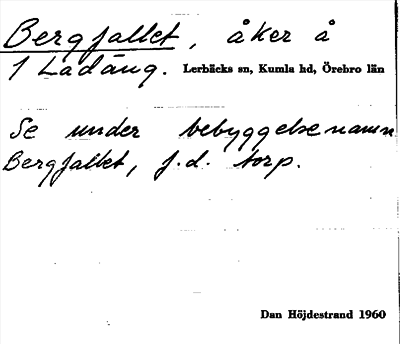 Bergfallet, åker å
1 Ladäng. Lerbäcks sn, Kumla hd, Örebro län
Se under bebyggelsenamn
Bergfallet, f.d. torp.
Dan Höjdestrand 1960